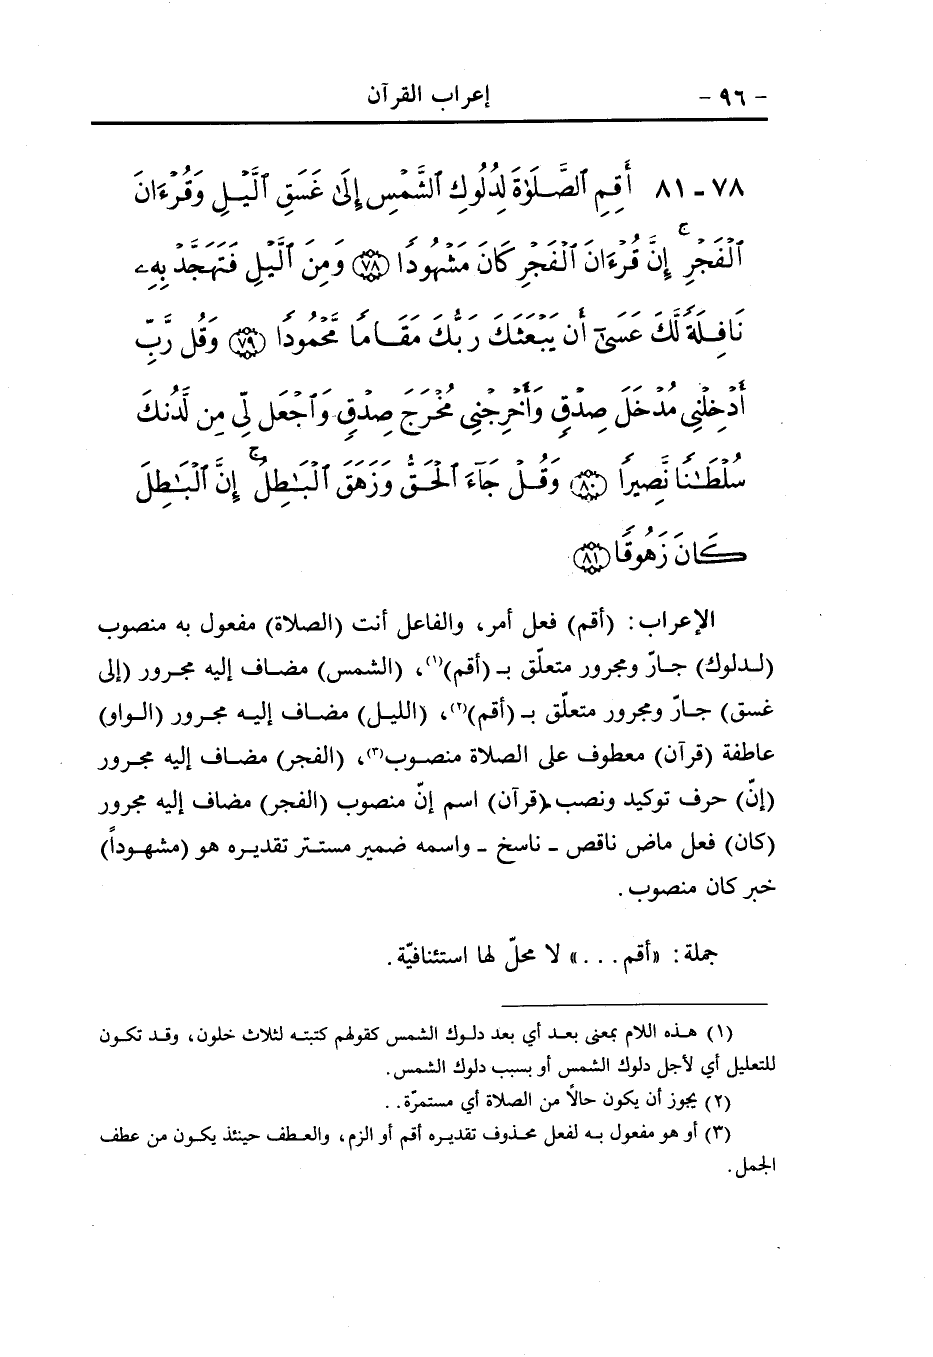 - ٩٦ - إعراب القرآن
٧٨ - ٨١ أَقِمِ ٱلصَّلَوٰةَ لِدُلُوكِ ٱلشَّمْسِ إِلَىٰ غَسَقِ ٱلَّيْلِ وَقُرْءَانَ
ٱلْفَجْرِ ۖ إِنَّ قُرْءَانَ ٱلْفَجْرِ كَانَ مَشْهُودًا ﴿٧٨﴾ وَمِنَ ٱلَّيْلِ فَتَهَجَّدْ بِهِۦ
نَافِلَةً لَّكَ عَسَىٰٓ أَن يَبْعَثَكَ رَبُّكَ مَقَامًا مَّحْمُودًا ﴿٧٩﴾ وَقُل رَّبِّ
أَدْخِلْنِى مُدْخَلَ صِدْقٍ وَأَخْرِجْنِى مُخْرَجَ صِدْقٍ وَٱجْعَل لِّى مِن لَّدُنكَ
سُلْطَٰنًا نَّصِيرًا ﴿٨٠﴾ وَقُلْ جَآءَ ٱلْحَقُّ وَزَهَقَ ٱلْبَٰطِلُ ۚ إِنَّ ٱلْبَٰطِلَ
كَانَ زَهُوقًا ﴿٨١﴾
الإعراب: (أقم) فعل أمر، والفاعل أنت (الصلاة) مفعول به منصوب
(لدلوك) جارّ ومجرور متعلّق بـ (أقم)(١)، (الشمس) مضاف إليه مجرور (إلى
غسق) جارّ ومجرور متعلّق بـ (أقم)(٢)، (الليل) مضاف إليه مجرور (الواو)
عاطفة (قرآن) معطوف على الصلاة منصوب(٣)، (الفجر) مضاف إليه مجرور
(إنّ) حرف توكيد ونصب (قرآن) اسم إنّ منصوب (الفجر) مضاف إليه مجرور
(كان) فعل ماض ناقص - ناسخ - واسمه ضمير مستتر تقديره هو (مشهوداً)
خبر كان منصوب.
جملة: «أقم...» لا محلّ لها استئنافيّة.
(١) هذه اللام بمعنى بعد أي بعد دلوك الشمس كقولهم كتبته لثلاث خلون، وقد تكون
للتعليل أي لأجل دلوك الشمس أو بسبب دلوك الشمس.
(٢) يجوز أن يكون حالاً من الصلاة أي مستمرّة..
(٣) أو هو مفعول به لفعل محذوف تقديره أقم أو الزم، والعطف حينئذ يكون من عطف
الجمل.